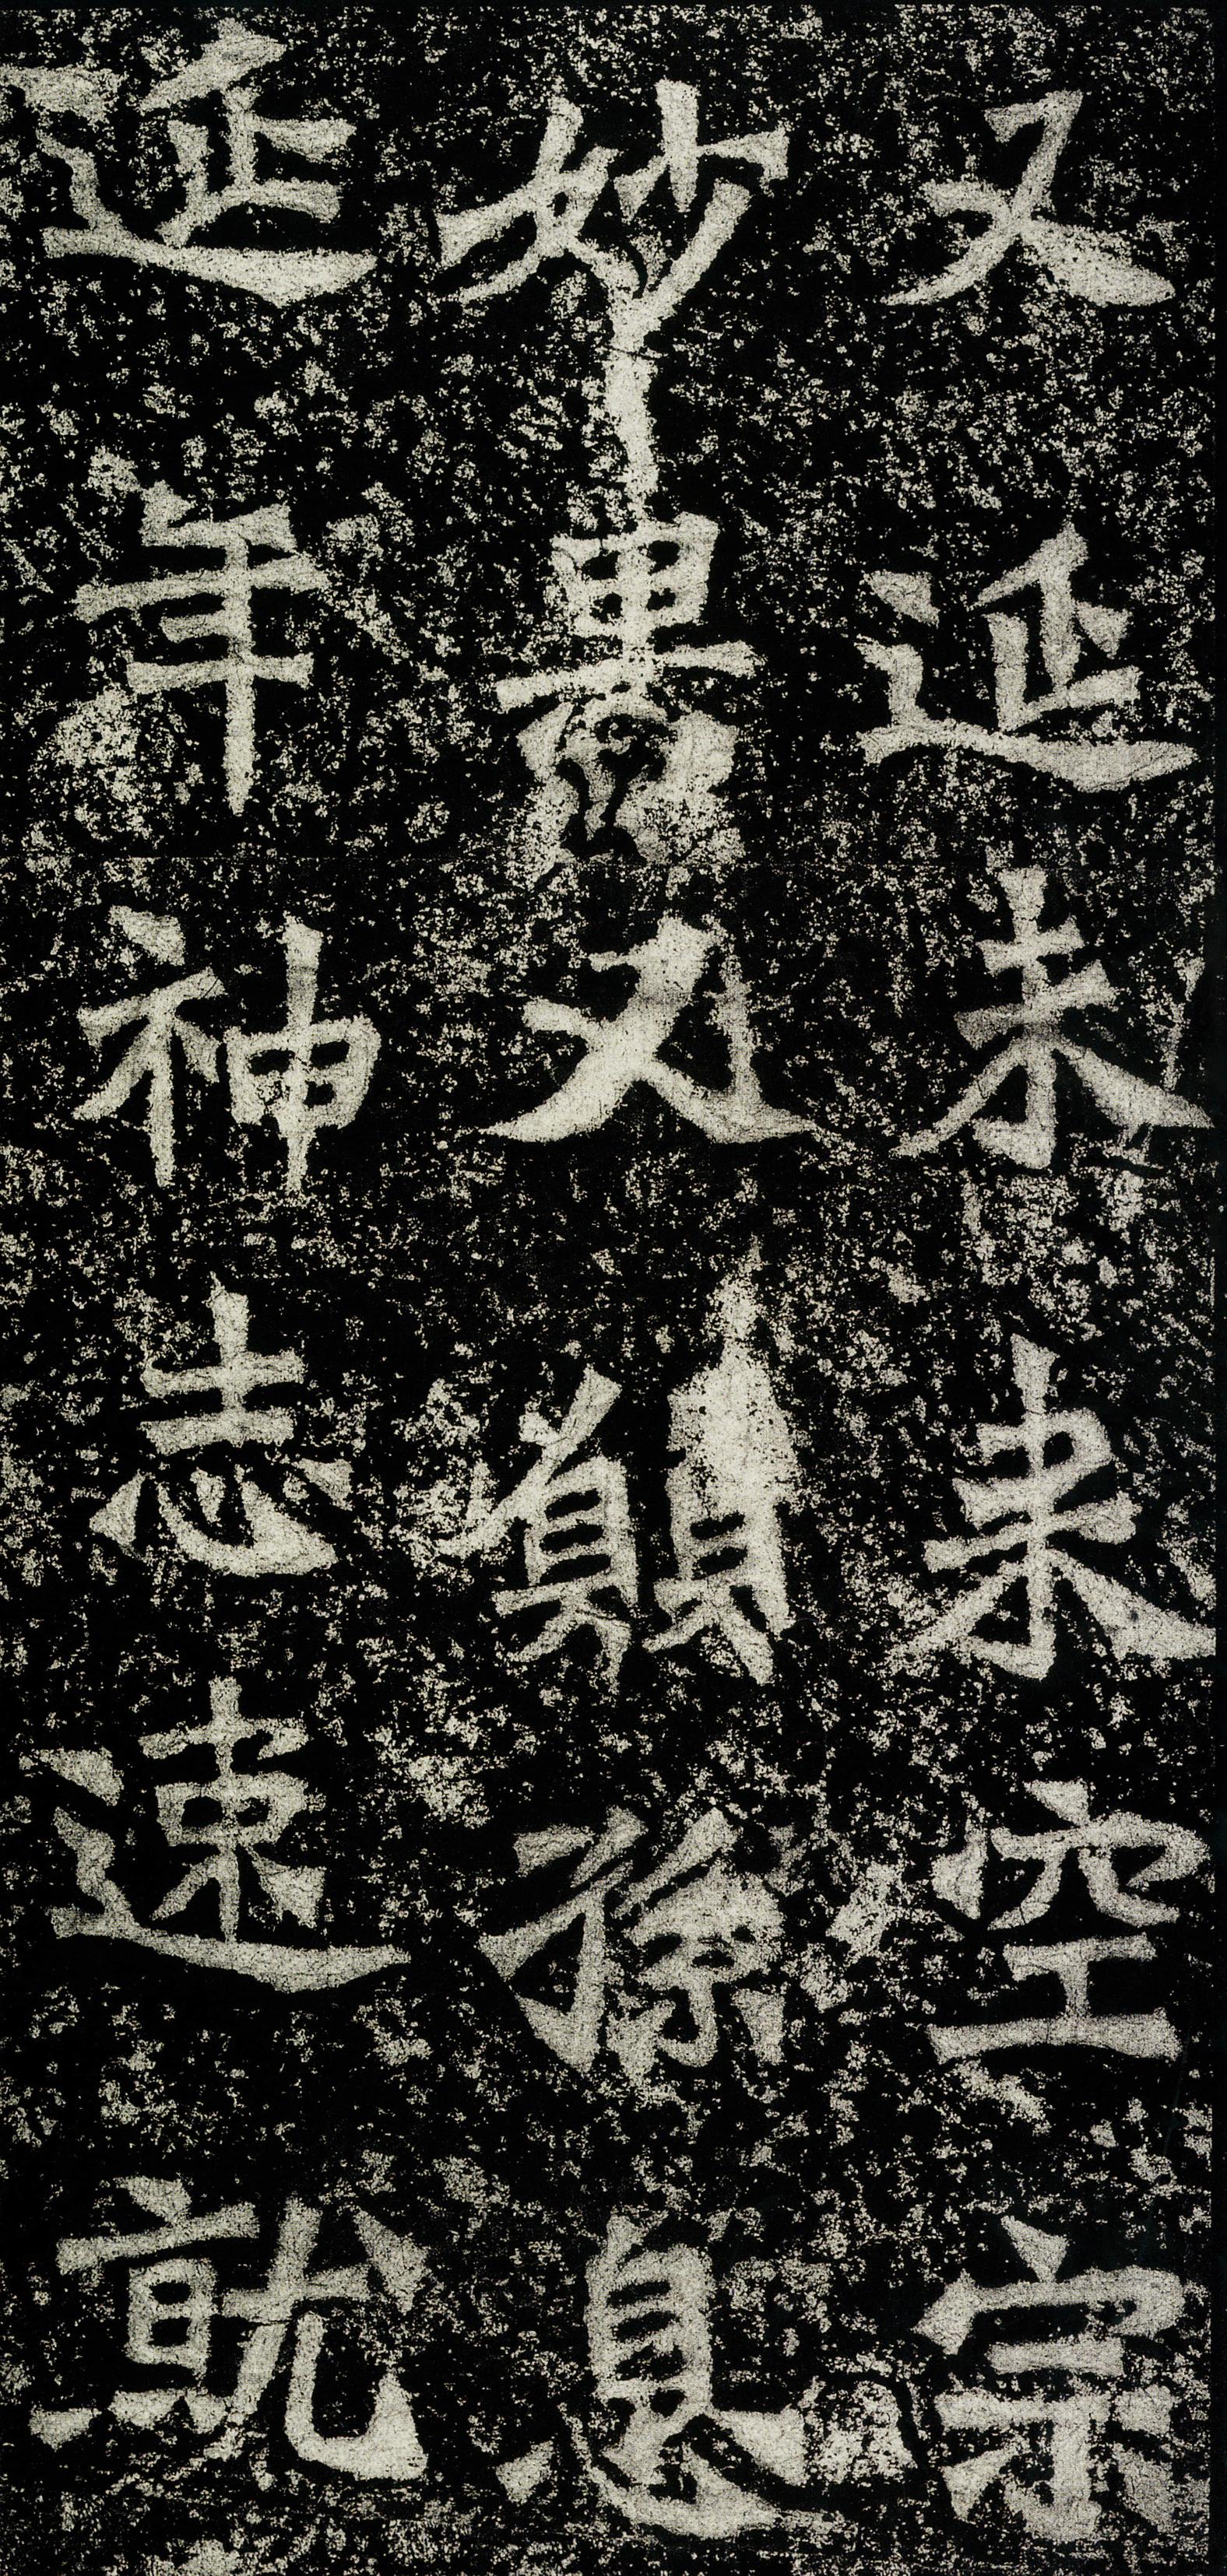 又延未來空宗
妙果又願孫息
延年神志速就